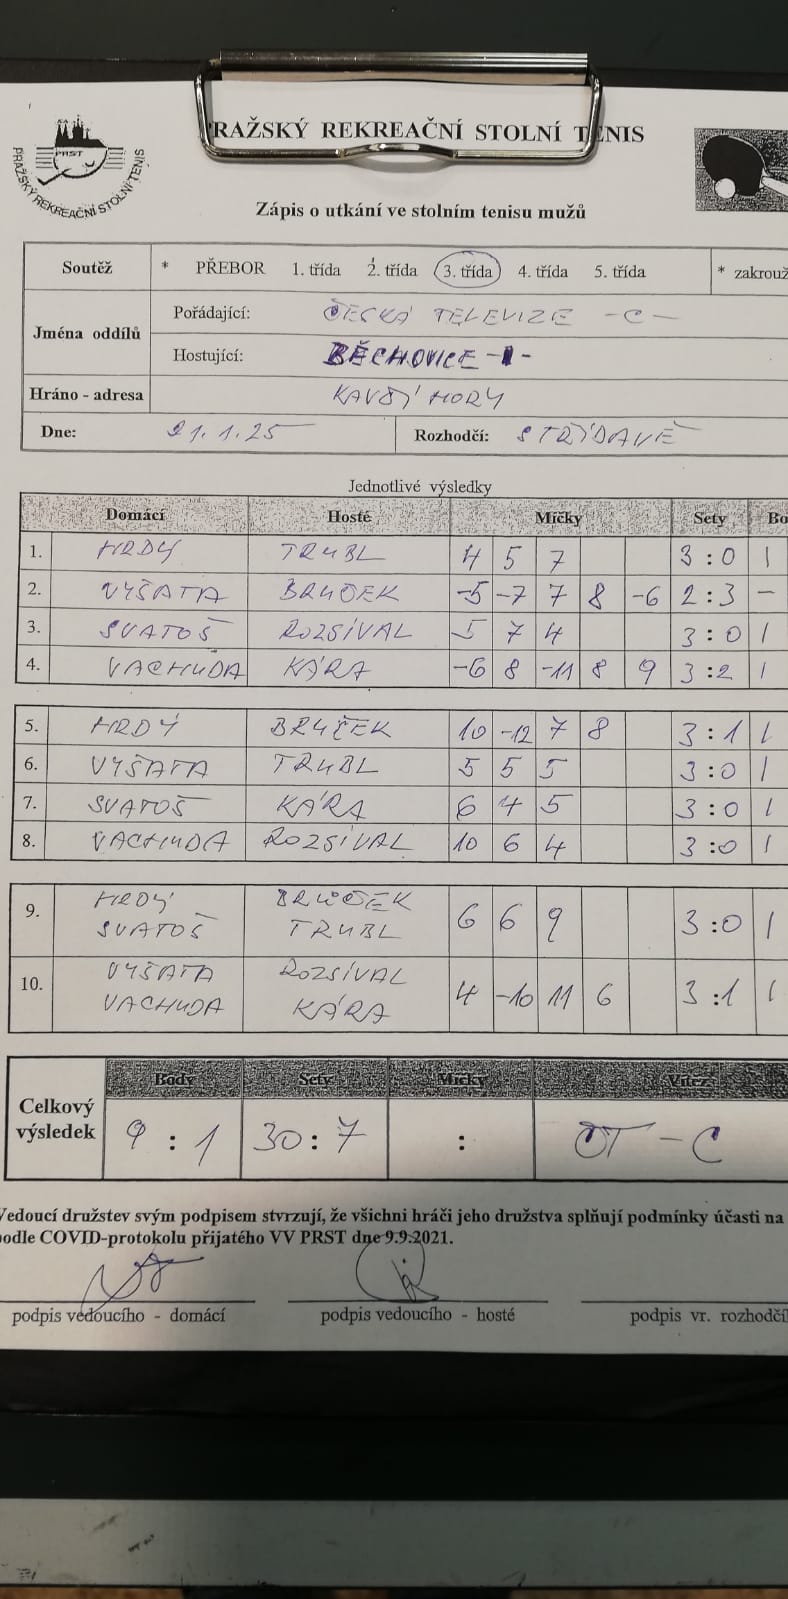 PRAŽSKÝ REKREAČNÍ STOLNÍ TENIS
PRST
PRAŽSKÝ REKREAČNÍ STOLNÍ TENIS
Zápis o utkání ve stolním tenisu mužů
Soutěž * PŘEBOR 1. třída 2. třída 3. třída 4. třída 5. třída * zakrouž
Jména oddílů
Pořádající: ČESKÁ TELEVIZE -C-
Hostující: BĚCHOVICE -I-
Hráno - adresa KAVČÍ HORY
Dne: 21.1.25 Rozhodčí: STŘÍDAVĚ
Jednotlivé výsledky
Domácí Hosté Míčky Sety Bo
1. HRDÝ TRUBL 4 5 7 3:0 1
2. VYŠATA BRUČEK -5 -7 7 8 -6 2:3 -
3. SVATOŠ ROZSÍVAL 5 7 4 3:0 1
4. VACHUDA KÁRA -6 8 -11 8 9 3:2 1
5. HRDÝ BRUČEK 10 -12 7 8 3:1 1
6. VYŠATA TRUBL 5 5 5 3:0 1
7. SVATOŠ KÁRA 6 4 5 3:0 1
8. VACHUDA ROZSÍVAL 10 6 4 3:0 1
9. HRDÝ BRUČEK 6 6 9 3:0 1
SVATOŠ TRUBL
10. VYŠATA ROZSÍVAL 4 -10 11 6 3:1 1
VACHUDA KÁRA
Body Sety Míčky Vítěz
Celkový
výsledek 9:1 30:7 : ČT-C
Vedoucí družstev svým podpisem stvrzují, že všichni hráči jeho družstva splňují podmínky účasti na
podle COVID-protokolu přijatého VV PRST dne 9.9.2021.
podpis vedoucího - domácí podpis vedoucího - hosté podpis vr. rozhodčí